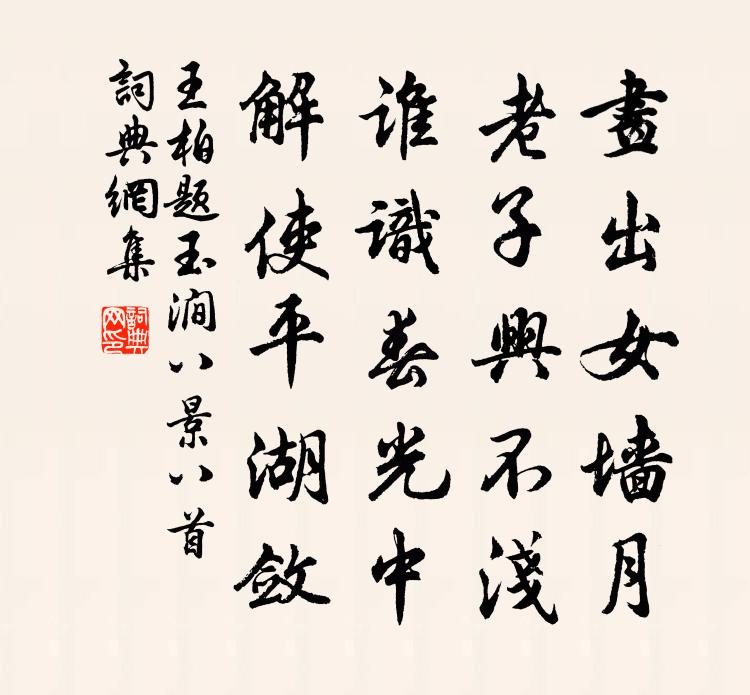 畫出女墻月
老子興不淺
誰識春光中
解使平湖斂
王柏题玉澗八景八首
詞典網集
詞典网印